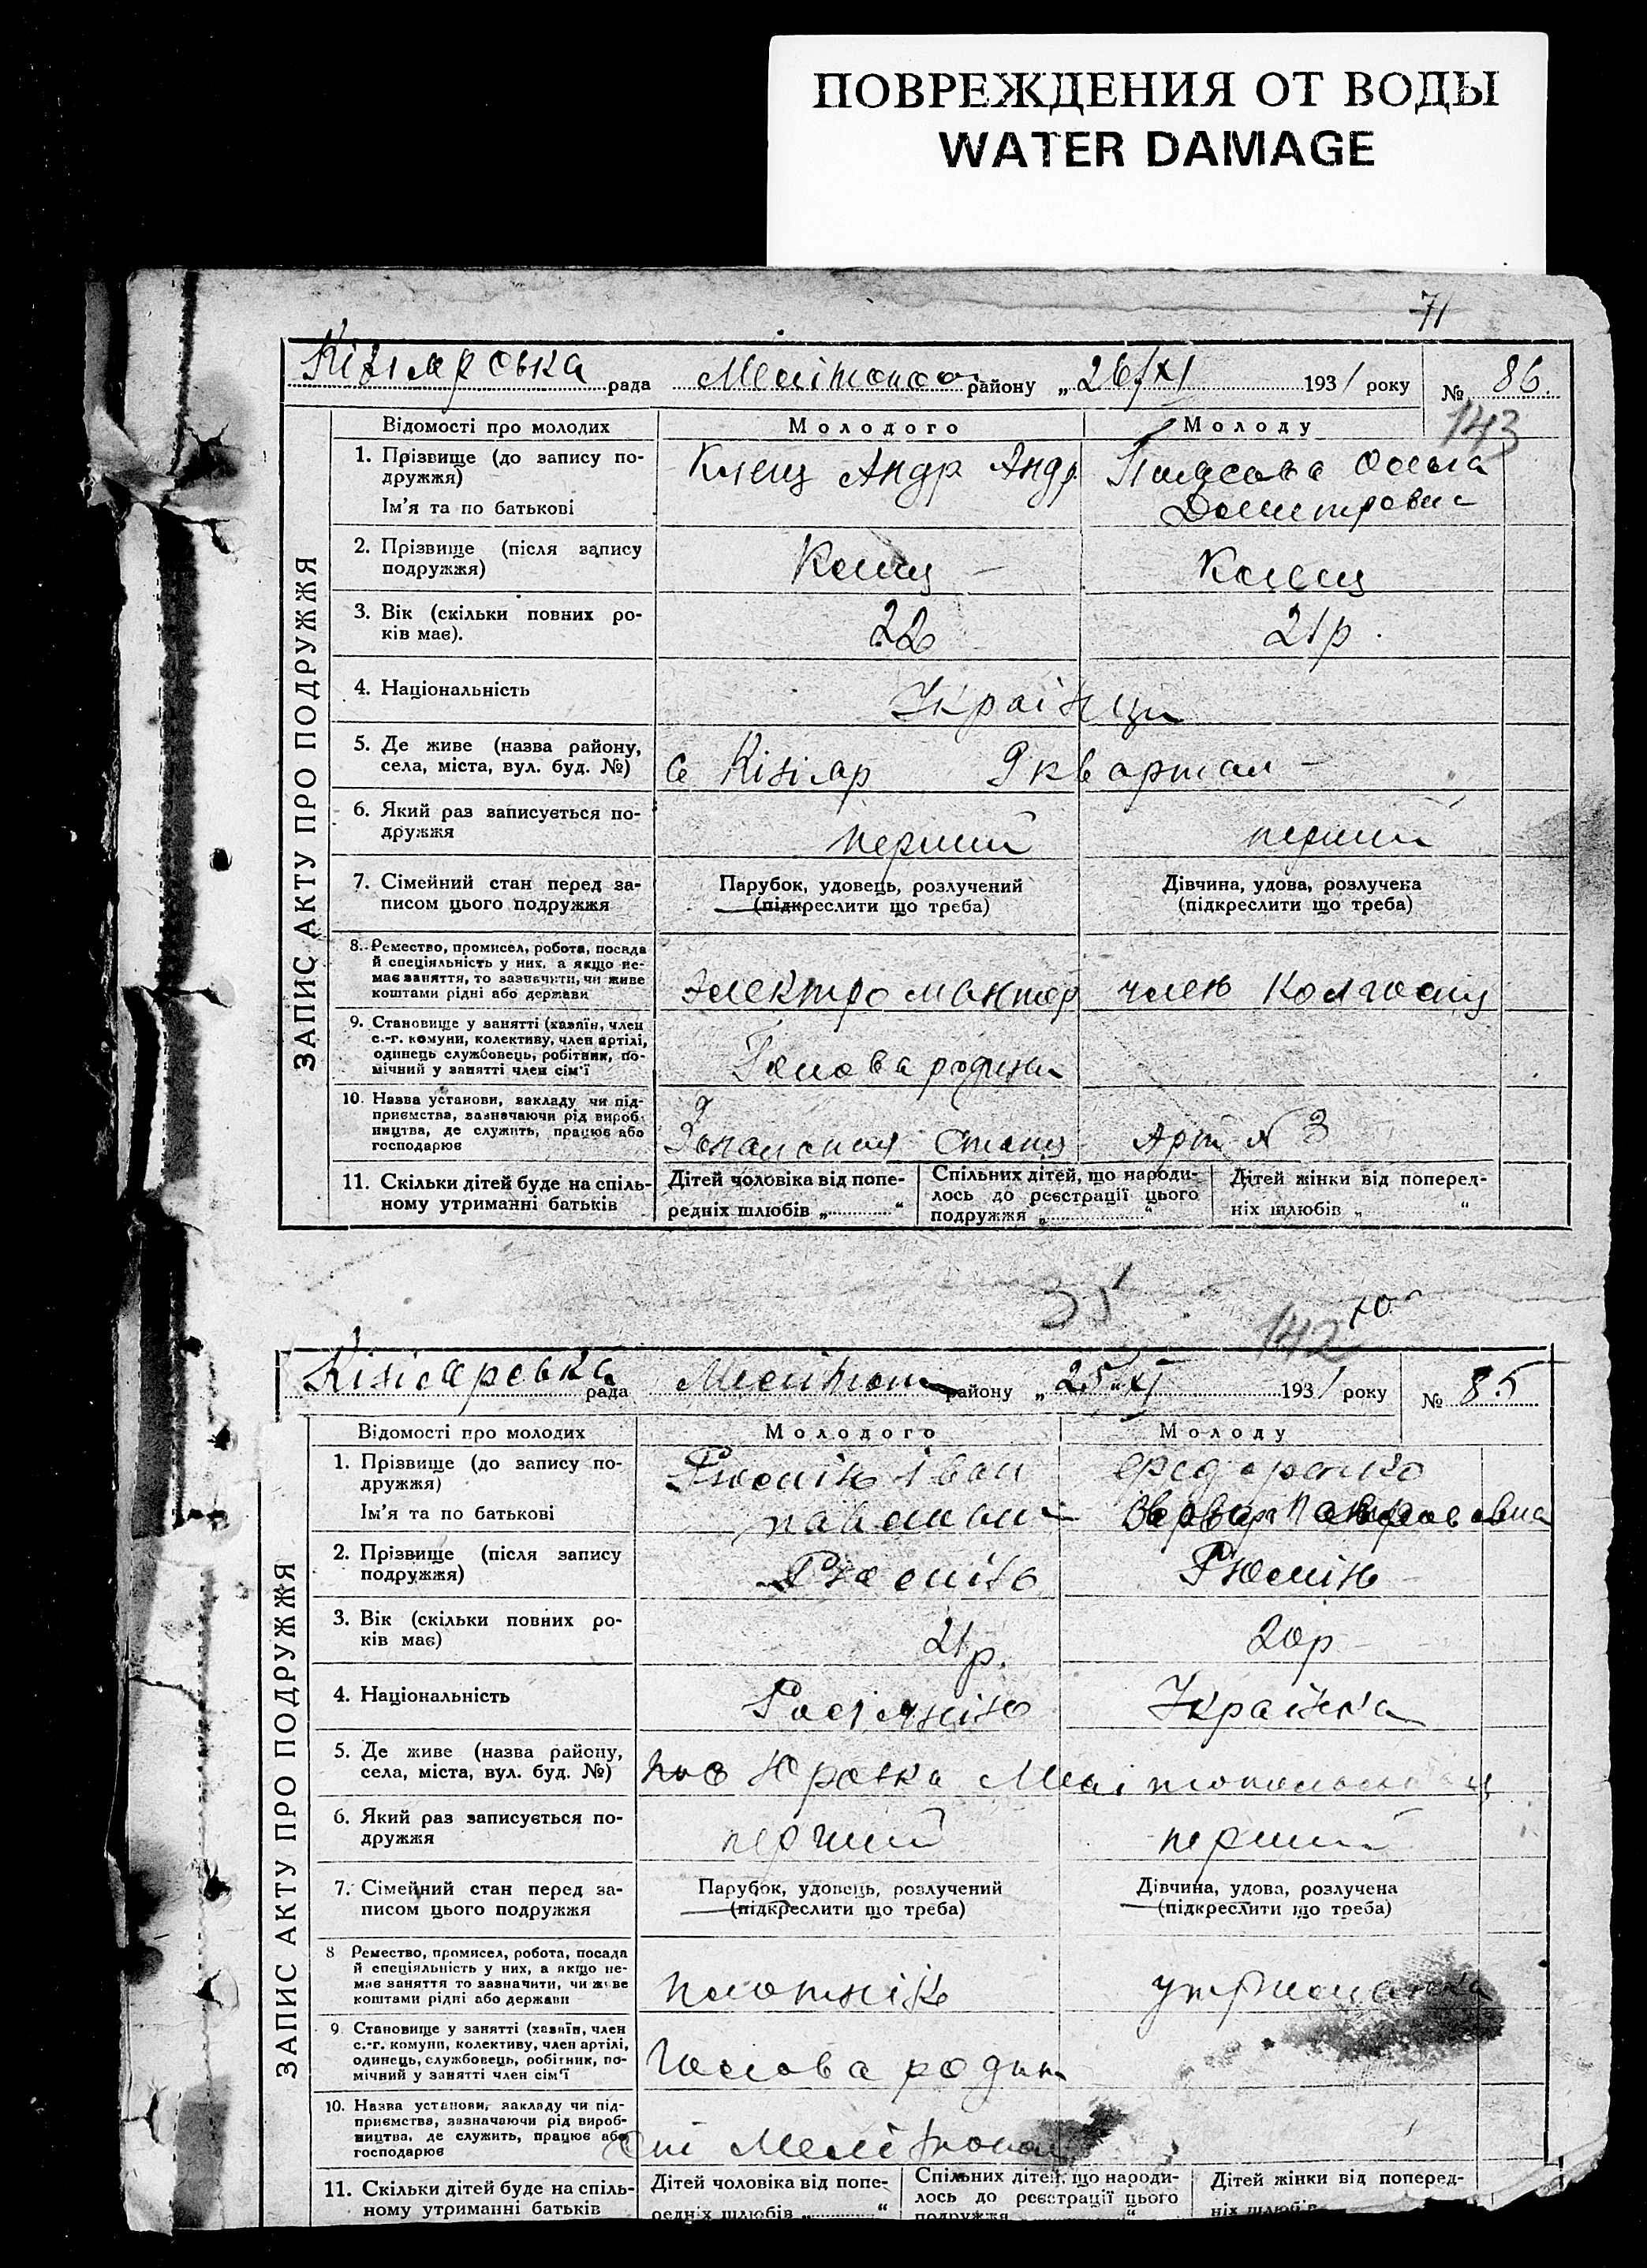 ПОВРЕЖДЕНИЯ ОТ ВОДЫ
WATER DAMAGE
71
Кізіярська рада района „ 26/XI 1931 року № 86.
143
Відомості про молодих Молодого Молоду
1. Прізвище (до запису по- Клещ Андр Андр.
дружжя)
Ім'я та по батькові
2. Прізвище (після запису Клещ Клещ
подружжя)
3. Вік (скільки повних ро- 22 21р.
ків має).
4. Національність Українци
5. Де живе (назва району,
села, міста, вул. буд. №) с Кізіяр 9 квартал
6. Який раз записується по- перший перший
дружжя
7. Сімейний стан перед за- Парубок, удовець, розлучений Дівчина, удова, розлучена
писом цього подружжя (підкреслити що треба) (підкреслити що треба)
8. Ремество, промисел, робота, посада
й спеціяльність у них, а якщо не-
має заняття, то зазначити, чи живе
коштами рідні або держави Электромонтер член Колгоспу
9. Становище у занятті (хазяїн, член
с.-г. комуни, колективу, член артілі,
одинець службовець, робітник, по-
мічний у занятті член сім'ї Голова родини
10. Назва установи, закладу чи під-
приємства, зазначаючи рід вироб-
ництва, де служить, працює або Арт № 3
господарює
11. Скільки дітей буде на спіль- Дітей чоловіка від попе- Спільних дітей, що народи- Дітей жінки від поперед-
ному утриманні батьків редніх шлюбів „ “ лось до реєстрації цього ніх шлюбів „ “
подружжя „ “
ЗАПИС АКТУ ПРО ПОДРУЖЖЯ
35
142 70
Кізіяровка рада району „ 25/XI 1931 року № 85
Відомості про молодих Молодого Молоду
1. Прізвище (до запису по- Рюмін Іван
дружжя)
Ім'я та по батькові
2. Прізвище (після запису Рюмін Рюмін
подружжя)
3. Вік (скільки повних ро- 21р. 20р
ків має)
4. Національність Росіянін Українка
5. Де живе (назва району,
села, міста, вул. буд. №) Юровка
6. Який раз записується по- перший перший
дружжя
7. Сімейний стан перед за- Парубок, удовець, розлучений Дівчина, удова, розлучена
писом цього подружжя (підкреслити що треба) (підкреслити що треба)
8 Ремество, промисел, робота, посада
й спеціяльність у них, а якщо не-
має заняття то зазначити, чи живе
коштами рідні або держави плотнік утриманка
9. Становище у занятті (хазяїн, член
с.-г. комуни, колективу, член артілі,
одинець, службовець, робітник, по-
мічний у занятті член сім'ї Голова родин
10. Назва установи, закладу чи під-
приємства, зазначаючи рід вироб-
ництва, де служить, працює або
господарює ст Мелітополь
11. Скільки дітей буде на спіль- Дітей чоловіка від попе- Спільних дітей, що народи- Дітей жінки від поперед-
ному утриманні батьків редніх шлюбів „ “ лось до реєстрації цього ніх шлюбів
подружжя “
ЗАПИС АКТУ ПРО ПОДРУЖЖЯ